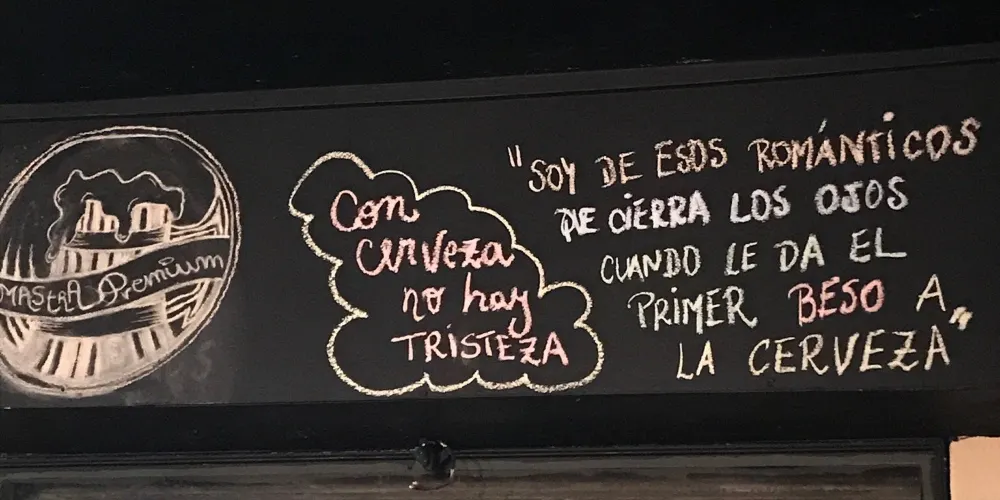 MASTRA Premium
Con
cerveza
no hay
TRISTEZA
"SOY DE ESOS ROMÁNTICOS
QUE CIERRA LOS OJOS
CUANDO LE DA EL
PRIMER BESO A
LA CERVEZA"